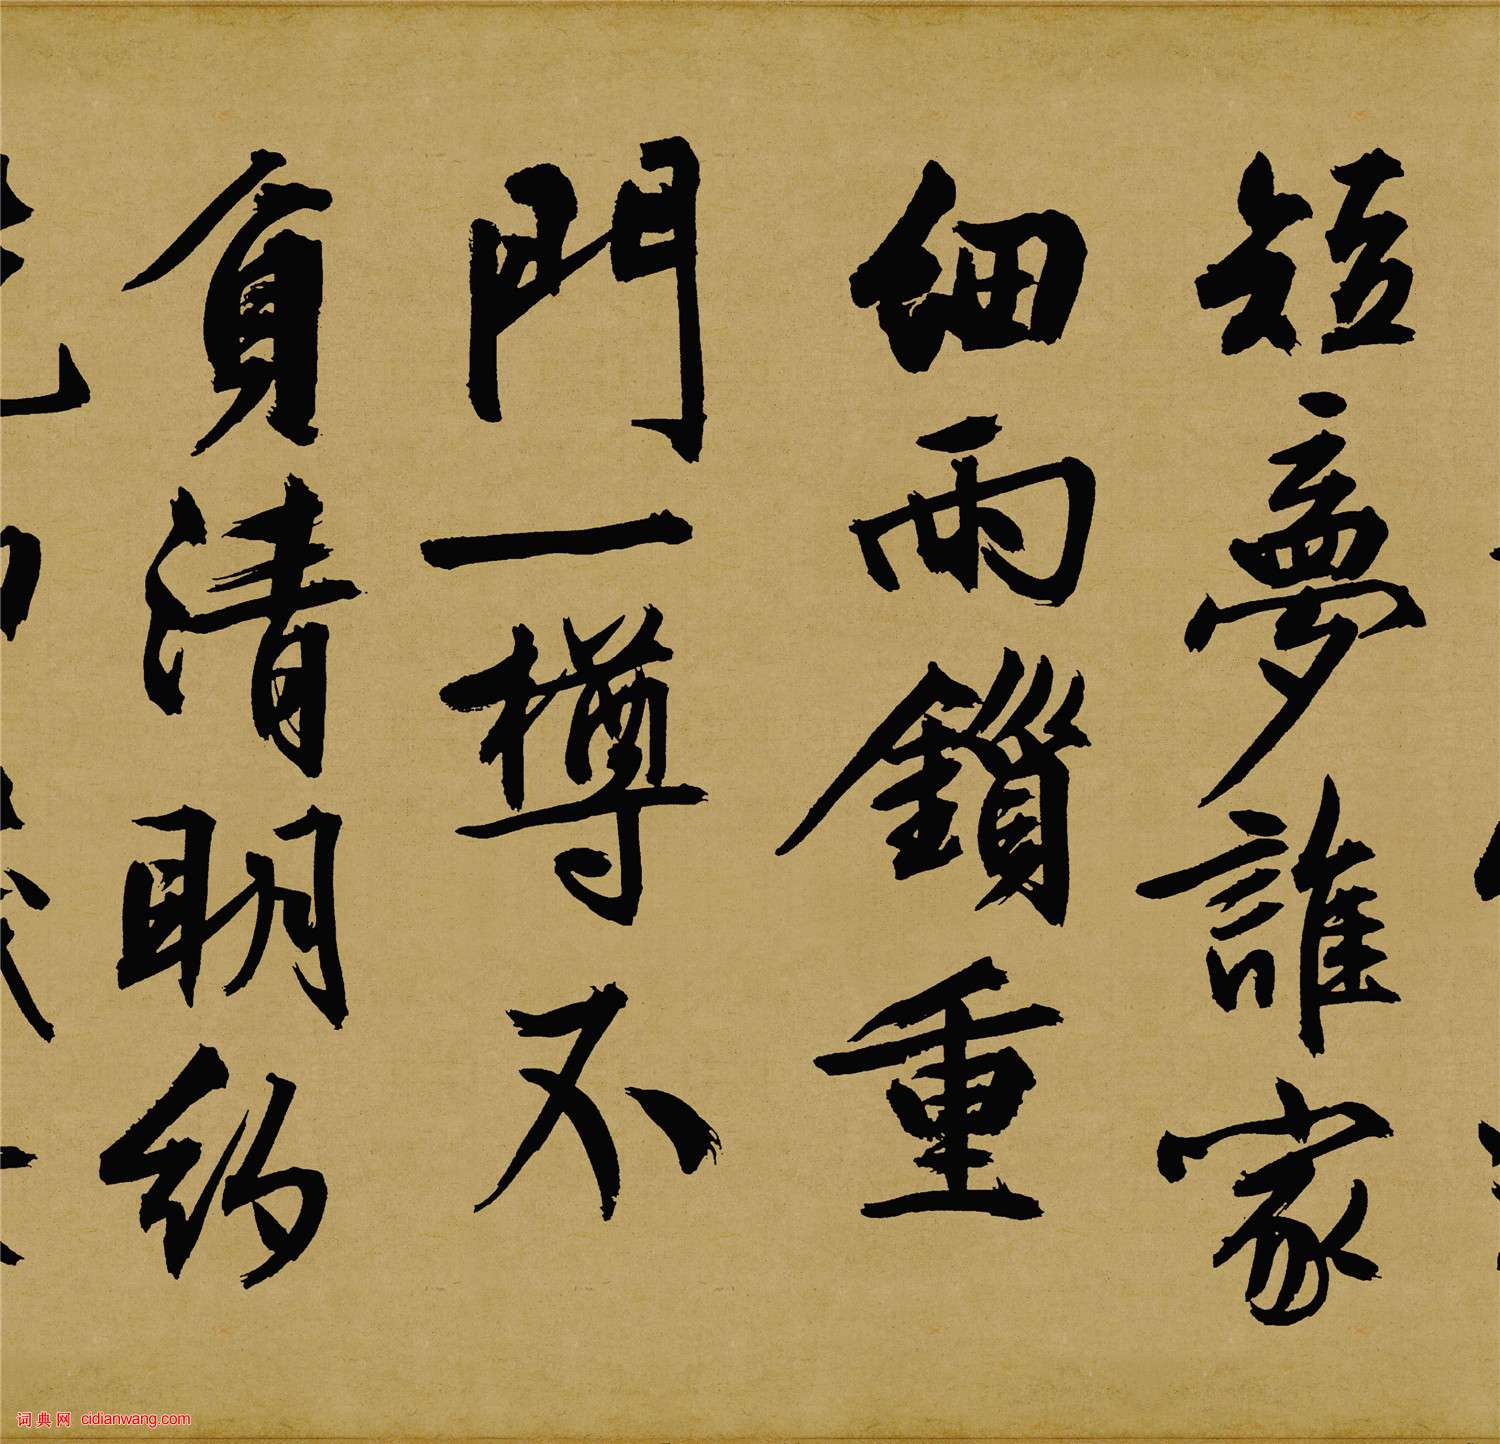 短夢誰家
細雨鎖重
門一樽不
負清明約
词典网 cidianwang.com